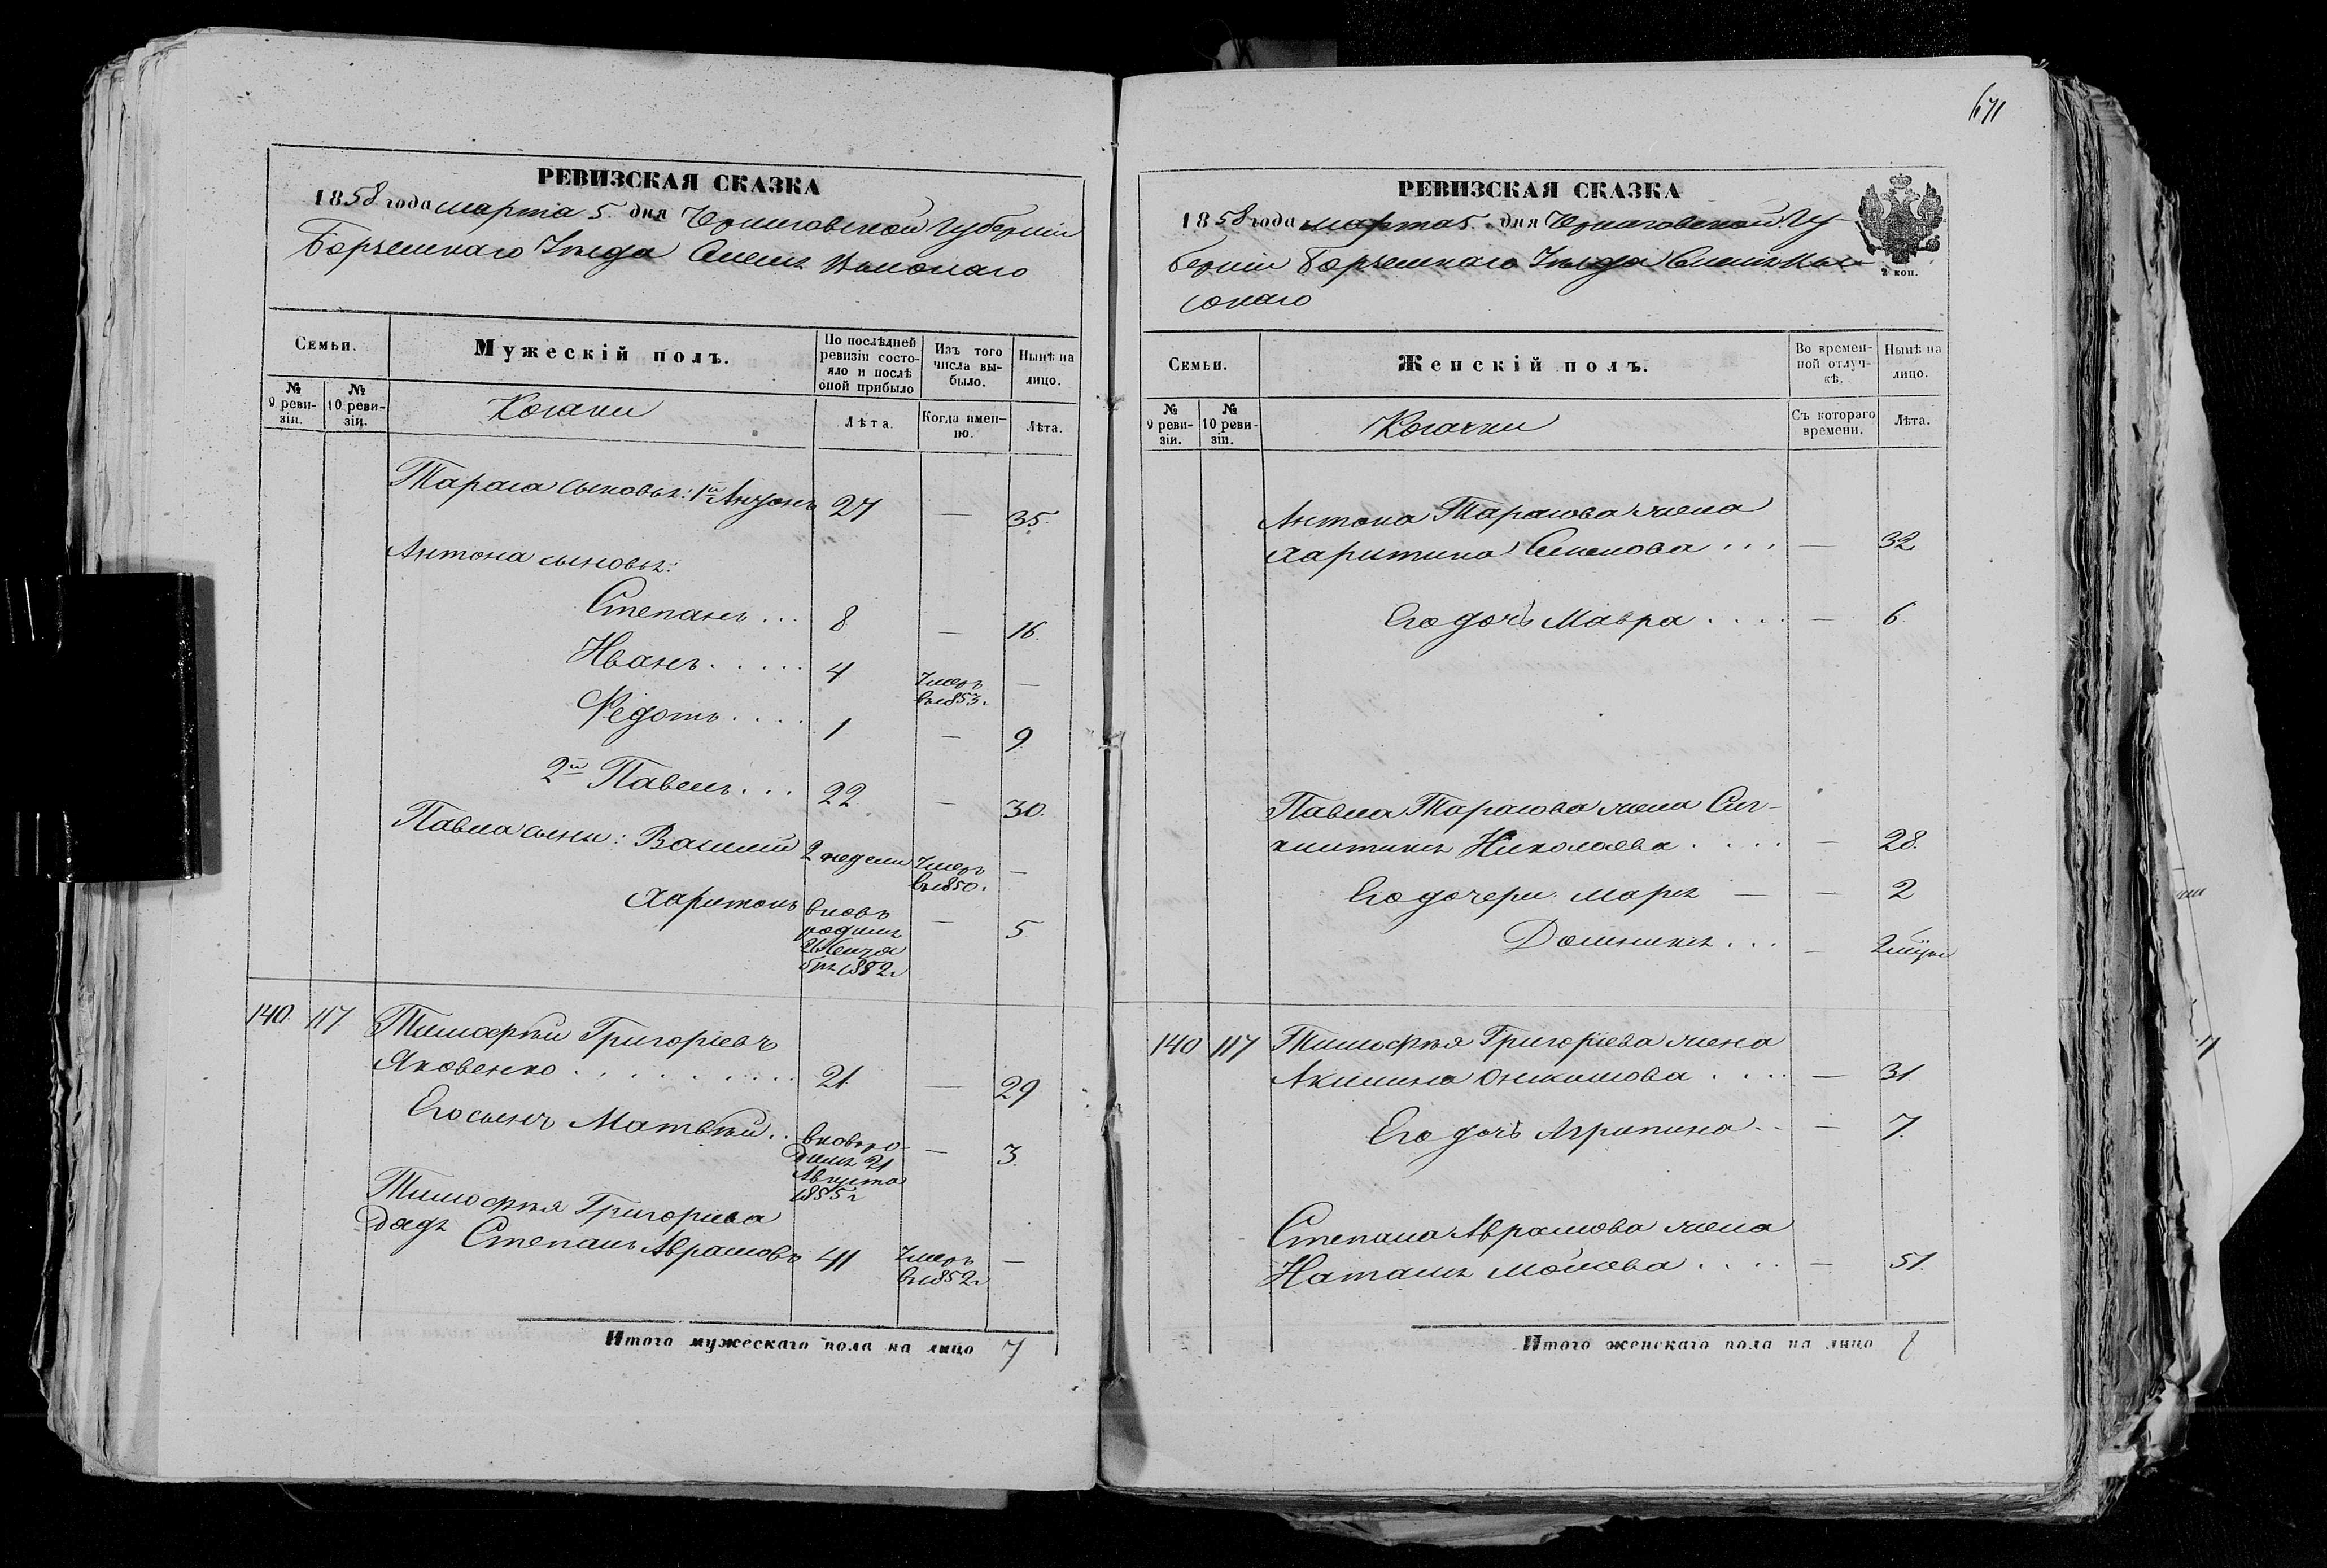 671
РЕВИЗСКАЯ СКАЗКА
1858 года марта 5. дня Черниговской Губерніи
Борзенскаго Уезда Села
Семьи.
Мужескій полъ.
По послѣдней ревизіи состояло и послѣ оной прибыло
Изъ того числа выбыло.
Нынѣ на лицо.
№ 9 ревизіи.
№ 10 ревизіи.
Козаки
Лѣта.
Когда именно.
Лѣта.
Тараса сыновья: 1й Антонъ 27 — 35.
Антона сыновья:
Степанъ ... 8 — 16.
Иванъ ..... 4 Умеръ въ 1853 г. —
Федотъ .... 1 — 9
2й Павелъ ... 22 — 30.
Павла сыны: Василій 2 недели Умеръ въ 1850 г. —
Харитонъ вновь — 5
140. 117. Тимофей Григоріевъ
Яковенко ......... 21. — 29
Его сынъ Матвѣй .. вновь родился 21 Августа 1855 г — 3.
Тимофея Григоріева
дядя Степанъ Аврамовъ 41 Умеръ въ 1852 г —
Итого мужескаго пола на лицо 7
РЕВИЗСКАЯ СКАЗКА
1858 года марта 5. дня Черниговской Гу-
берніи Борзенскаго Уезда Села
2 коп.
Семьи.
Женскій полъ.
Во временной отлучкѣ.
Нынѣ на лицо.
№ 9 ревизіи.
№ 10 ревизіи.
Козачки
Съ котораго времени.
Лѣта.
Антона Тарасова жена
Харитина Семенова ... — 32.
Его дочь Мавра .... — 6.
Павла Тарасова жена
Николаева .... — 28.
Его дочери: Марья — — 2
... —
140 117 Тимофея Григоріева жена
Акилина .... — 31.
Его дочь Агрипина .. — 7.
Степана Аврамова жена
Наталья .... — 51.
Итого женскаго пола на лицо